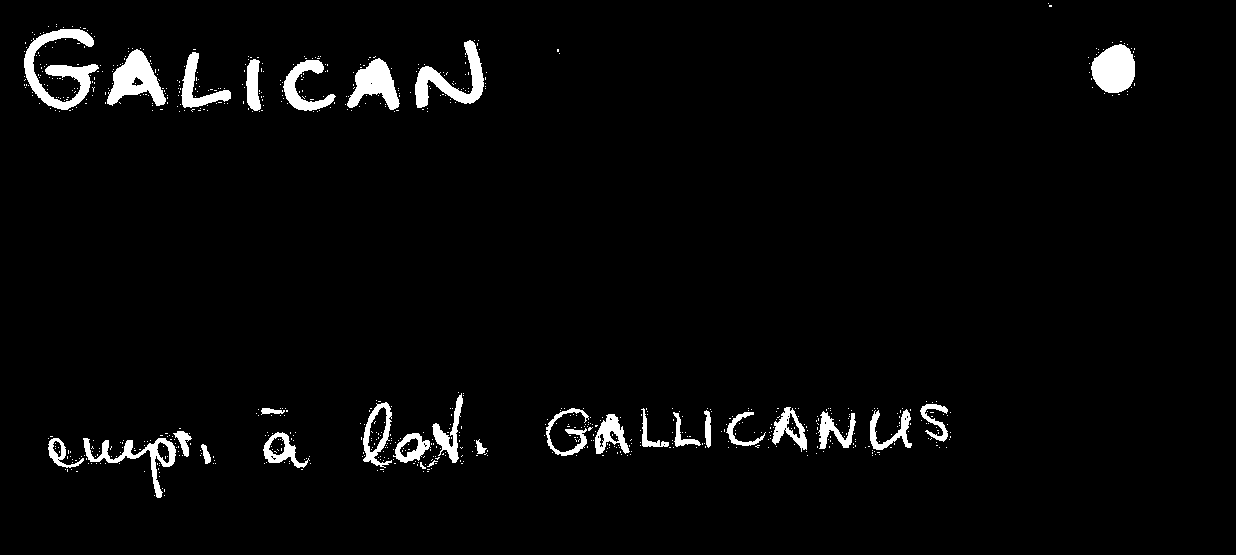 GALICAN
empr. ā lat. GALLICANUS